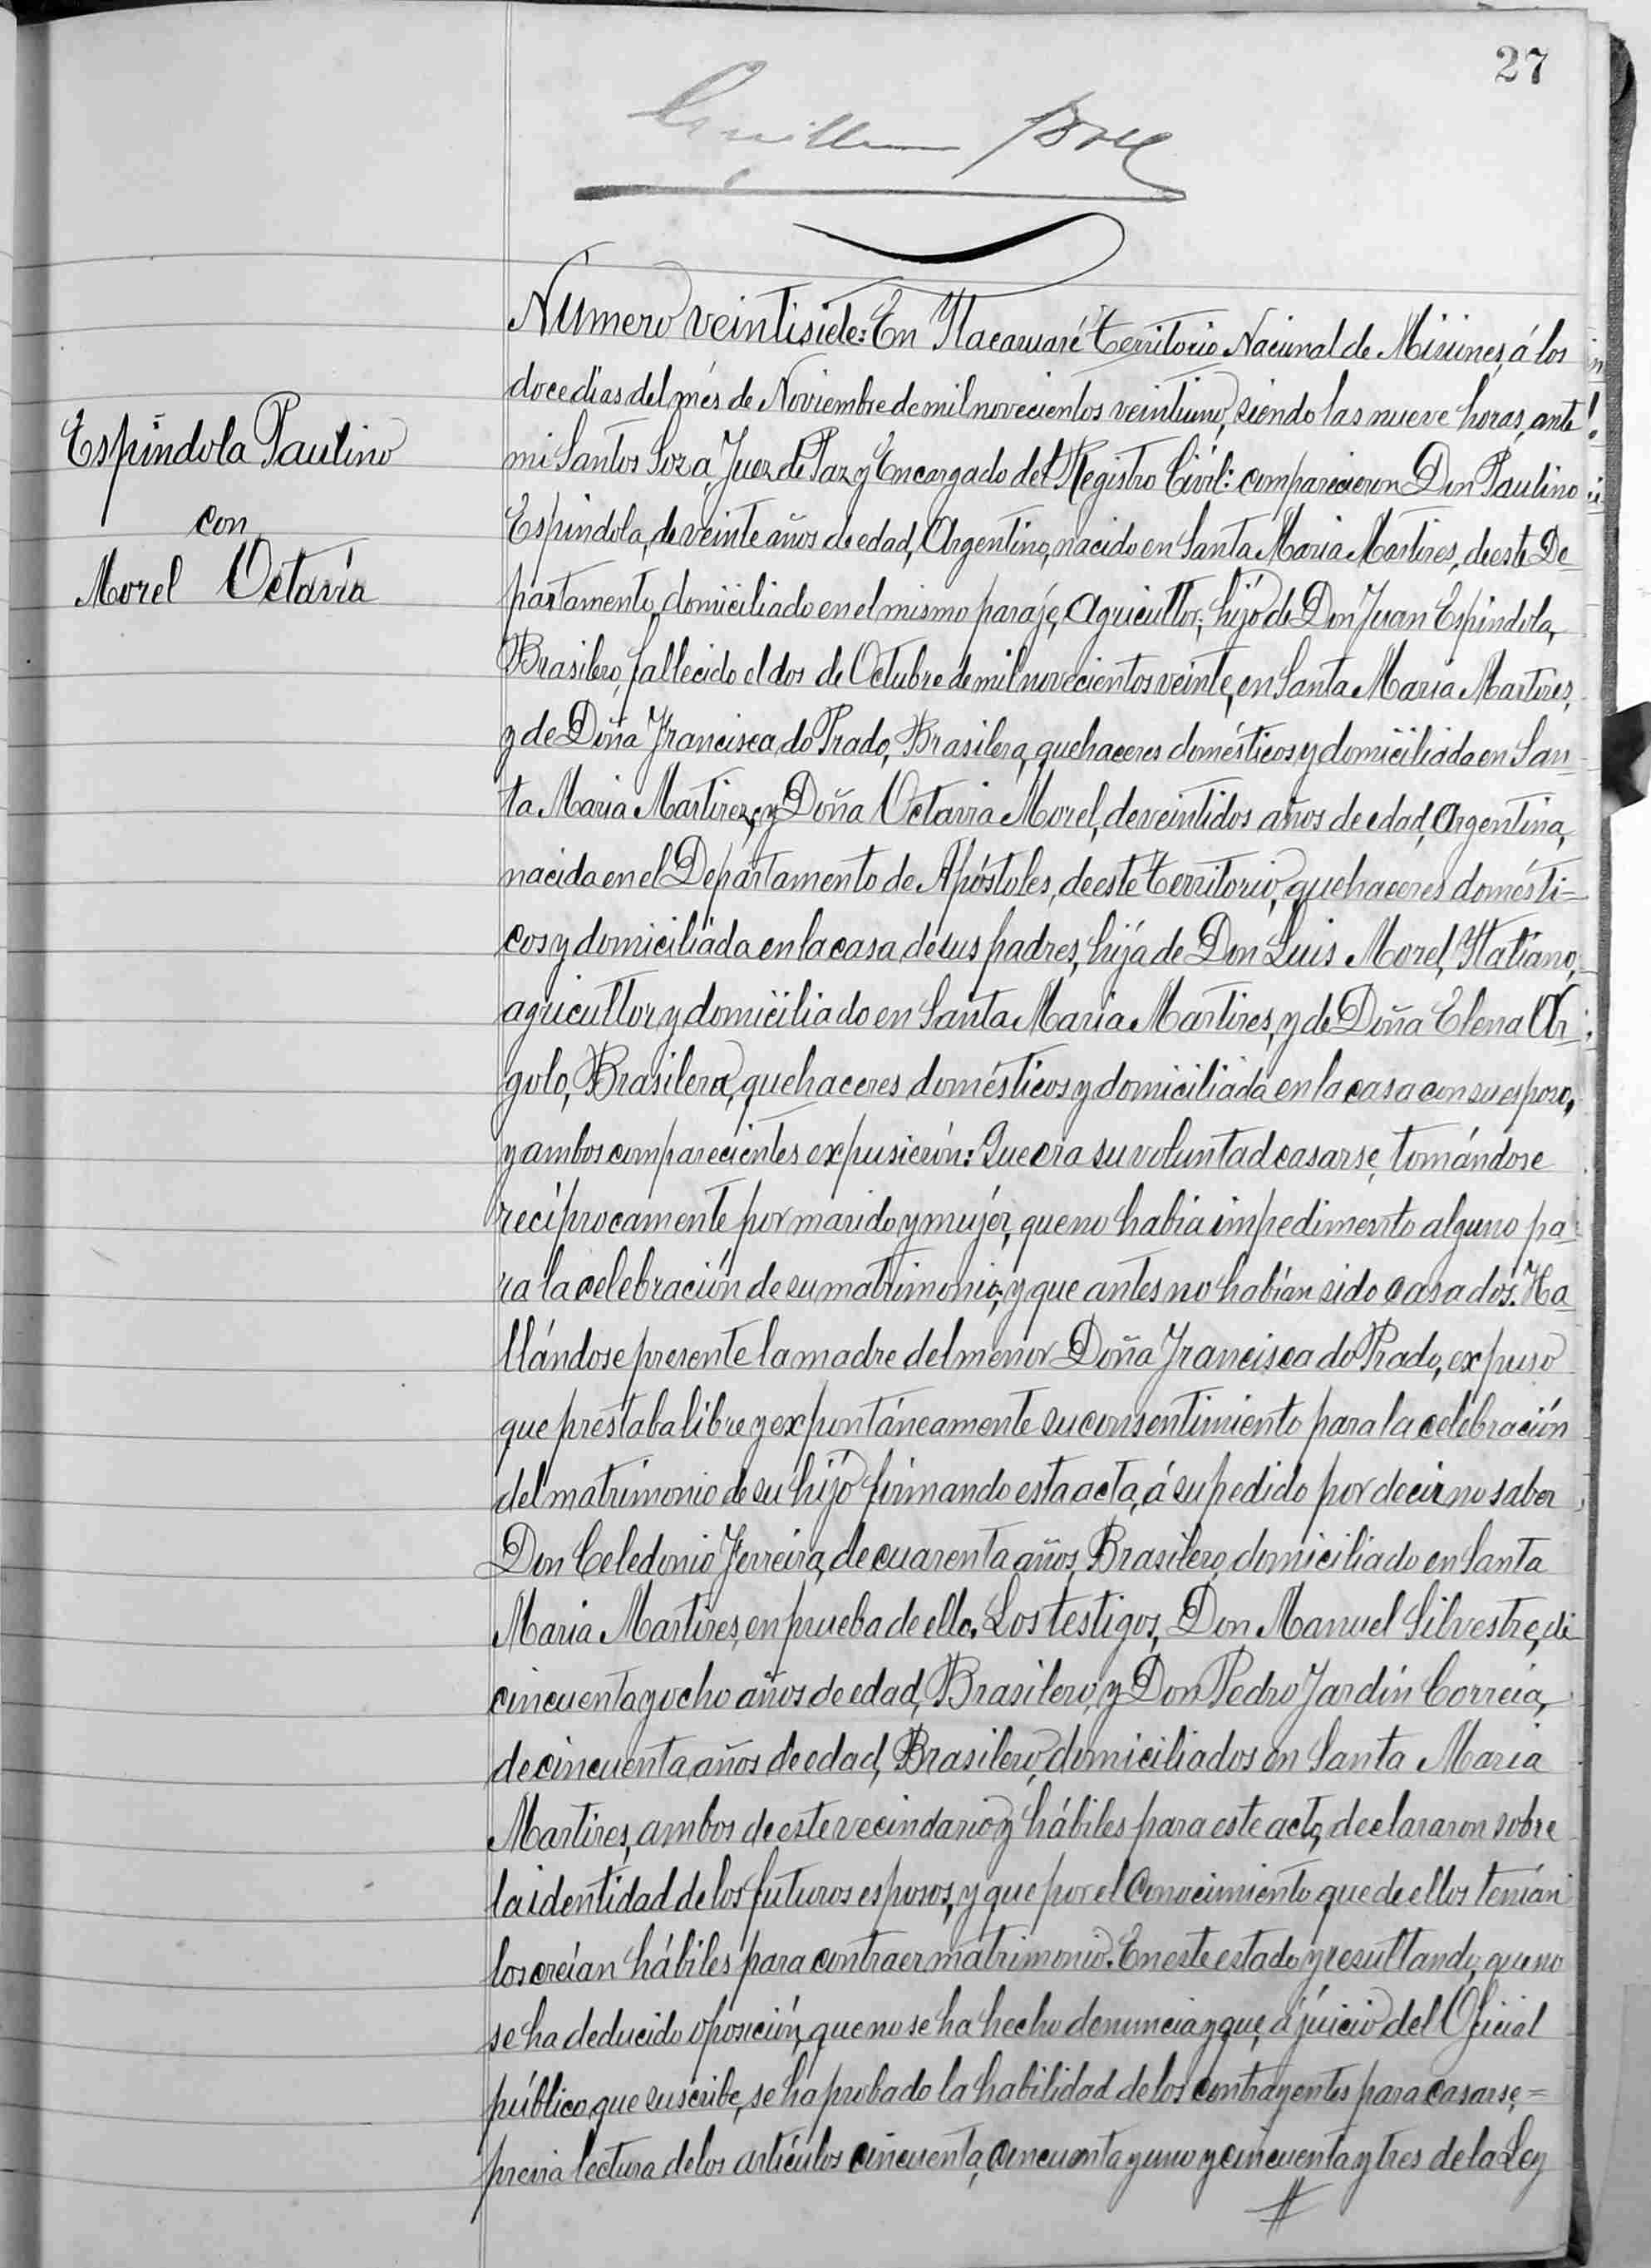 27
Espíndola Paulino
con
Morel Octavia
Número veintisiete: En Itacaruaré Territorio Nacional de Misiones, á los
doce dias del més de Noviembre de mil novecientos veintiuno, siendo las nueve horas, ante
mi Santos Soza, Juez de Paz y Encargado del Registro Civil: comparecieron Don Paulino
Espindola, de veinte años de edad, Argentino, nacido en Santa Maria Martires, de este De-
partamento, domiciliado en el mismo paraje, Agricultor, hijo de Don Juan Espindola,
Brasilero, fallecido el dos de Octubre de mil novecientos veinte, en Santa Maria Martires,
y de Doña Francisca do Prado, Brasilera, quehaceres domésticos y domiciliada en San-
ta Maria Martirez, y Doña Octavia Morel, de veintidos años de edad, Argentina,
nacida en el Departamento de Apóstoles, de este Territorio, quehaceres domésti=
cos y domiciliada en la casa de sus padres, hija de Don Luis Morel, Italiano,
agricultor y domiciliado en Santa Maria Martires, y de Doña Elena Ar-
golo, Brasilera, quehaceres domésticos y domiciliada en la casa con su esposo,
y ambos comparecientes expusierón: Que era su voluntad casarse, tomándose
recíprocamente por marido y mujér, que no habia impedimento alguno pa-
ra la celebración de su matrimonio; y que antes no habían sido casados. Ha-
llándose presente la madre del menor Doña Francisca do Prado, expuso
que prestaba libre y expontáneamente su consentimiento para la celebración
del matrimonio de su hijo firmando esta acta, á su pedido por decir no saber
Don Celedonio Ferreira, de cuarenta años, Brasilero, domiciliado en Santa
Maria Martires, en prueba de ello. Los testigos, Don Manuel Silvestre, de
cincuenta y ocho años de edad, Brasilero, y Don Pedro Jardín Correia,
de cincuenta años de edad, Brasilero, domiciliados en Santa Maria
Martires, ambos de este vecindario y hábiles para este acto, declararon sobre
la identidad de los futuros esposos, y que por el conocimiento que de ellos tenían
los creían hábiles para contraer matrimonio. En este estado y resultando, que no
se ha deducido oposición, que no se ha hecho denuncia y que, á juicio del Oficial
público que suscribe, se ha probado la habilidad de los contrayentes para casarse, =
previa lectura de los artículos cincuenta, cincuenta y uno y cincuenta y tres de la Ley